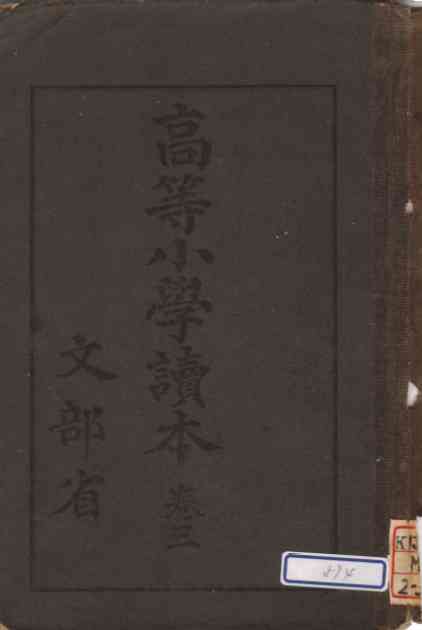 高等小學讀本 卷三
文部省
894
2-